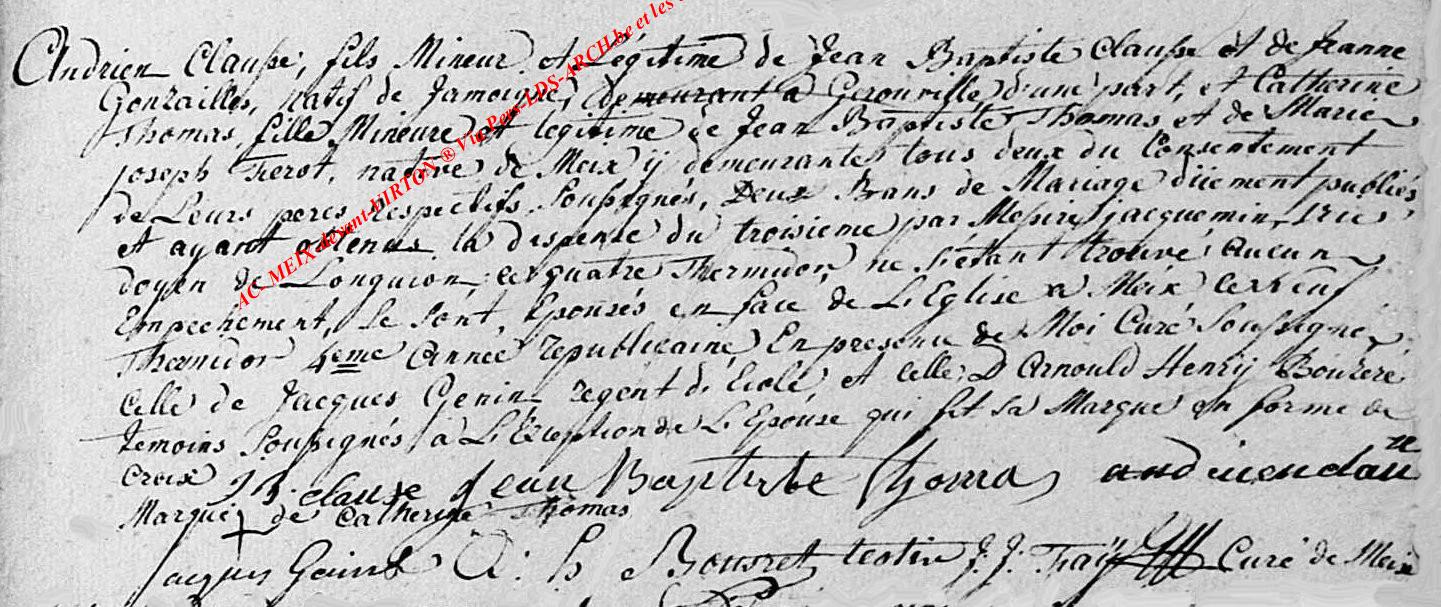 Andrien Clausse, fils Mineur et Légitime de Jean Baptiste Clausse et de Jeanne
Gonzailles, natif de Jamoigne, demeurant a Gerouville d'une part, et Catherine
Thomas, fille Mineure et legitime de Jean Baptiste Thomas et de Marie
joseph Fierot, native de Meix ÿ demeurante tous deux du Consentement
de Leurs peres respectifs Soussignés, Deux Bans de Mariage dûement publiés
et ayant obtenus la dispense du troisieme par Messire jacquemin,
doyen de Longuion, ce quatre Thermidor, ne s'étant trouvé aucun
Empechement, Se sont Epousés en face de L'Eglise a Meix le neuf
Thermidor 4eme Année republicaine, En presence de Moi Curé Soussigné,
Celle de Jacques Genin regent d'Ecole, et Celle D'Arnould Henrÿ Bouzeré
temoins Soussignés à L'Exception de L'Epouse qui fit sa Marque en forme de
Croix J b clausse Jean Baptiste Thoma andrien clau
Marque de Catherine Thomas
Jacques Genin A: h Bousret testis J. J. Curé de Meix
AC-MEIX devant-VIRTON ® Via Pers-LDS-ARCH.be et les